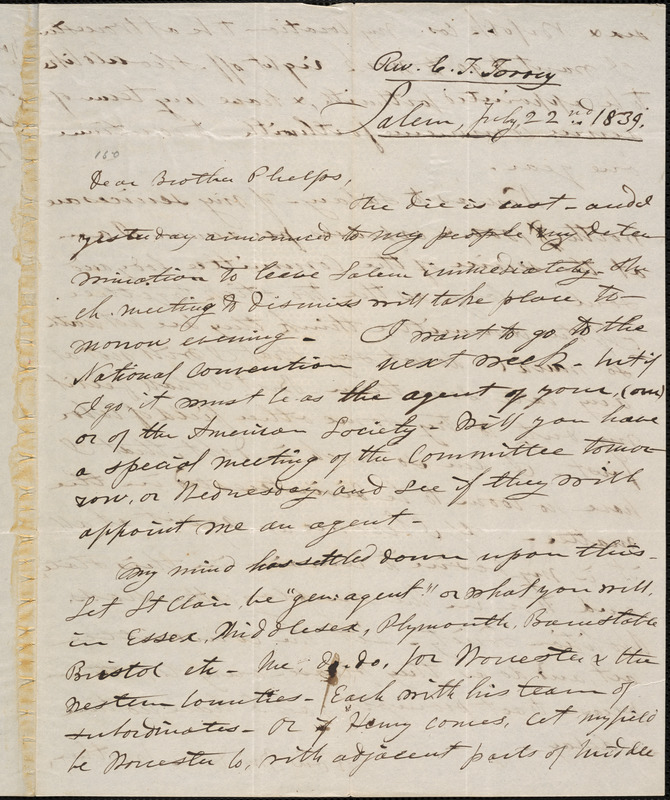 Rev. C. T. Torrey
Salem, July 22nd 1839.
160
Dear Brother Phelps,
The die is cast - and I
yesterday announced to my people my deter
mination to leave Salem immediately. The
ch. meeting to dismiss will take place to-
morrow evening - I want to go to the
National Convention next week - but if
I go it must be as the agent of your, (our)
or of the American Society - Will you have
a special meeting of the Committee tomor
row, or Wednesday, and see if they will
appoint me an agent -
My mind has settled down upon this -
Let St Clair, be "gen: agent" or what you will,
in Essex, Middlesex, Plymouth, Barnstable
Bristol etc - Me do. do. for Worcester & the
western counties - Each with his team of
subordinates - Or if Henry comes, let my field
be Worcester Co, with adjacent parts of Middle